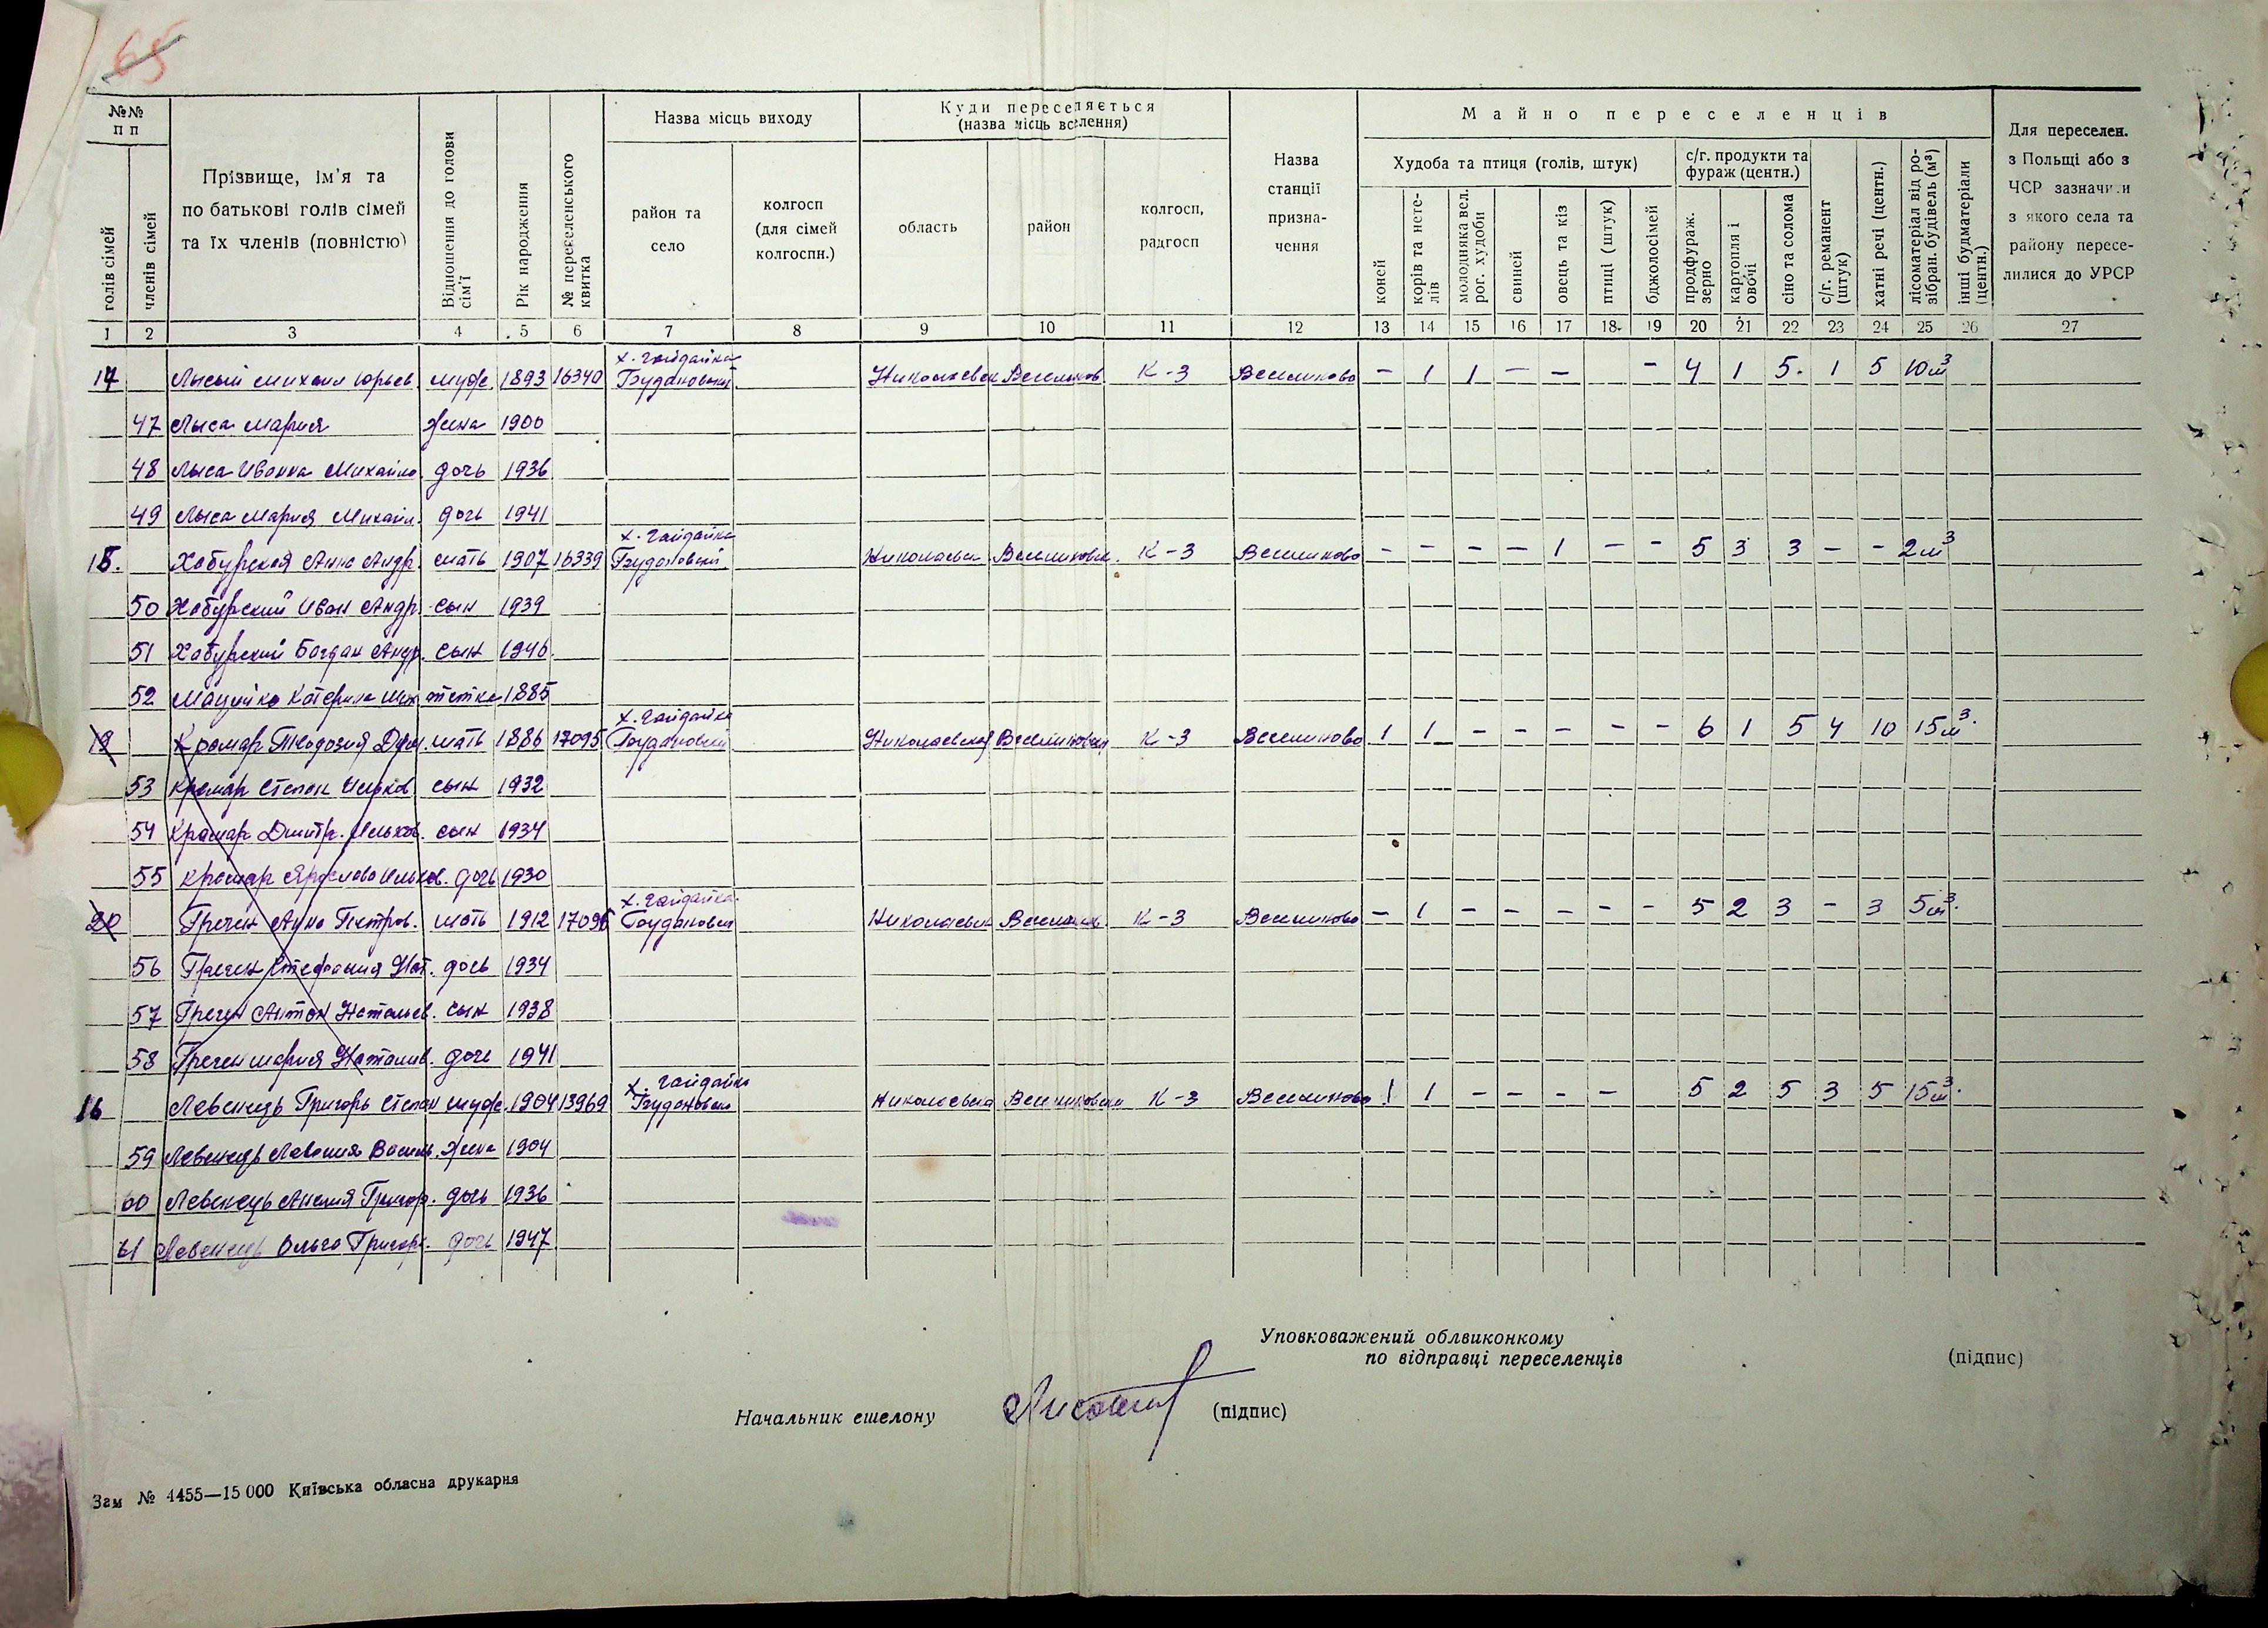 65
№№ п п
Прізвище, ім’я та по батькові голів сімей та їх членів (повністю)
Відношення до голови сім’ї
Рік народження
№ переселенського квитка
Назва місць виходу
Куди переселяється (назва місць вселення)
Назва станції призна-чення
Майно переселенців
Для переселен. з Польщі або з ЧСР зазначи.и з якого села та району пересе-лилися до УРСР
голів сімей
членів сімей
район та село
колгосп (для сімей колгоспн.)
область
район
колгосп, радгосп
Худоба та птиця (голів, штук)
с/г. продукти та фураж (центн.)
с/г. реманент (штук)
хатні речі (центн.)
лісоматеріал від ро-зібран. будівель (м³)
інші будматеріали (центн.)
коней
корів та нете-лів
молодняка вел. рог. худоби
свиней
овець та кіз
птиці (штук)
бджолосімей
продфураж. зерно
картопля і овочі
сіно та солома
1 2 3 4 5 6 7 8 9 10 11 12 13 14 15 16 17 18 19 20 21 22 23 24 25 26 27
х. Гайдайка
14 Лысый Михаил Юрьев. муж 1893 16340 Будановский Николаевск Веселинов. К-3 Веселиново - 1 1 - - - 4 1 5 1 5 10 м³
47 Лыса Мария жена 1900
48 Лыса Иванна Михайло. дочь 1936
49 Лыса Мария Михайл. дочь 1941
х. Гайдайка
15. Хабурская Анна Андр. мать 1907 16339 Будановский Николаевск Веселиновск. К-3 Веселиново - - - - 1 - - 5 3 3 - - 2 м³
50 Хабурский Иван Андр. сын 1939
51 Хабурский Богдан Андр. сын 1946
52 Катерина Мих тетка 1885
х. Гайдайка
19 Крамар Теодозия мать 1886 17095 Будановский Николаевская Веселиновск К-3 Веселиново 1 1 - - - - - 6 1 5 4 10 15 м³.
53 Крамар Степан Ильков. сын 1932
54 Крамар Дмитр. Ильков. сын 1934
55 Крамар Ярослава Ильков. дочь 1930
х. Гайдайка
20 Гречен Анна Петров. мать 1912 17096 Будановск Николаевск Веселинов. К-3 Веселиново - 1 - - - - - 5 2 3 - 3 5 м³.
56 Гречен Стефания Нат. дочь 1934
57 Гречен Антон сын 1938
58 Гречен Мария дочь 1941
х. Гайдайка
16 Левенець Григорь Степан муж. 1904 13969 Будановск Николаевска Веселиновск К-3 Веселиново 1 1 - - - - 5 2 5 3 5 15 м³.
59 Левенець Василь. жена 1904
60 Левенець Анелия Григор. дочь 1936
61 Левенець Ольга Григорь. дочь 1947
Уповковажений облвиконкому
по відправці переселенців (підпис)
Начальник ешелону (підпис)
Зам № 4455—15 000 Київська обласна друкарня